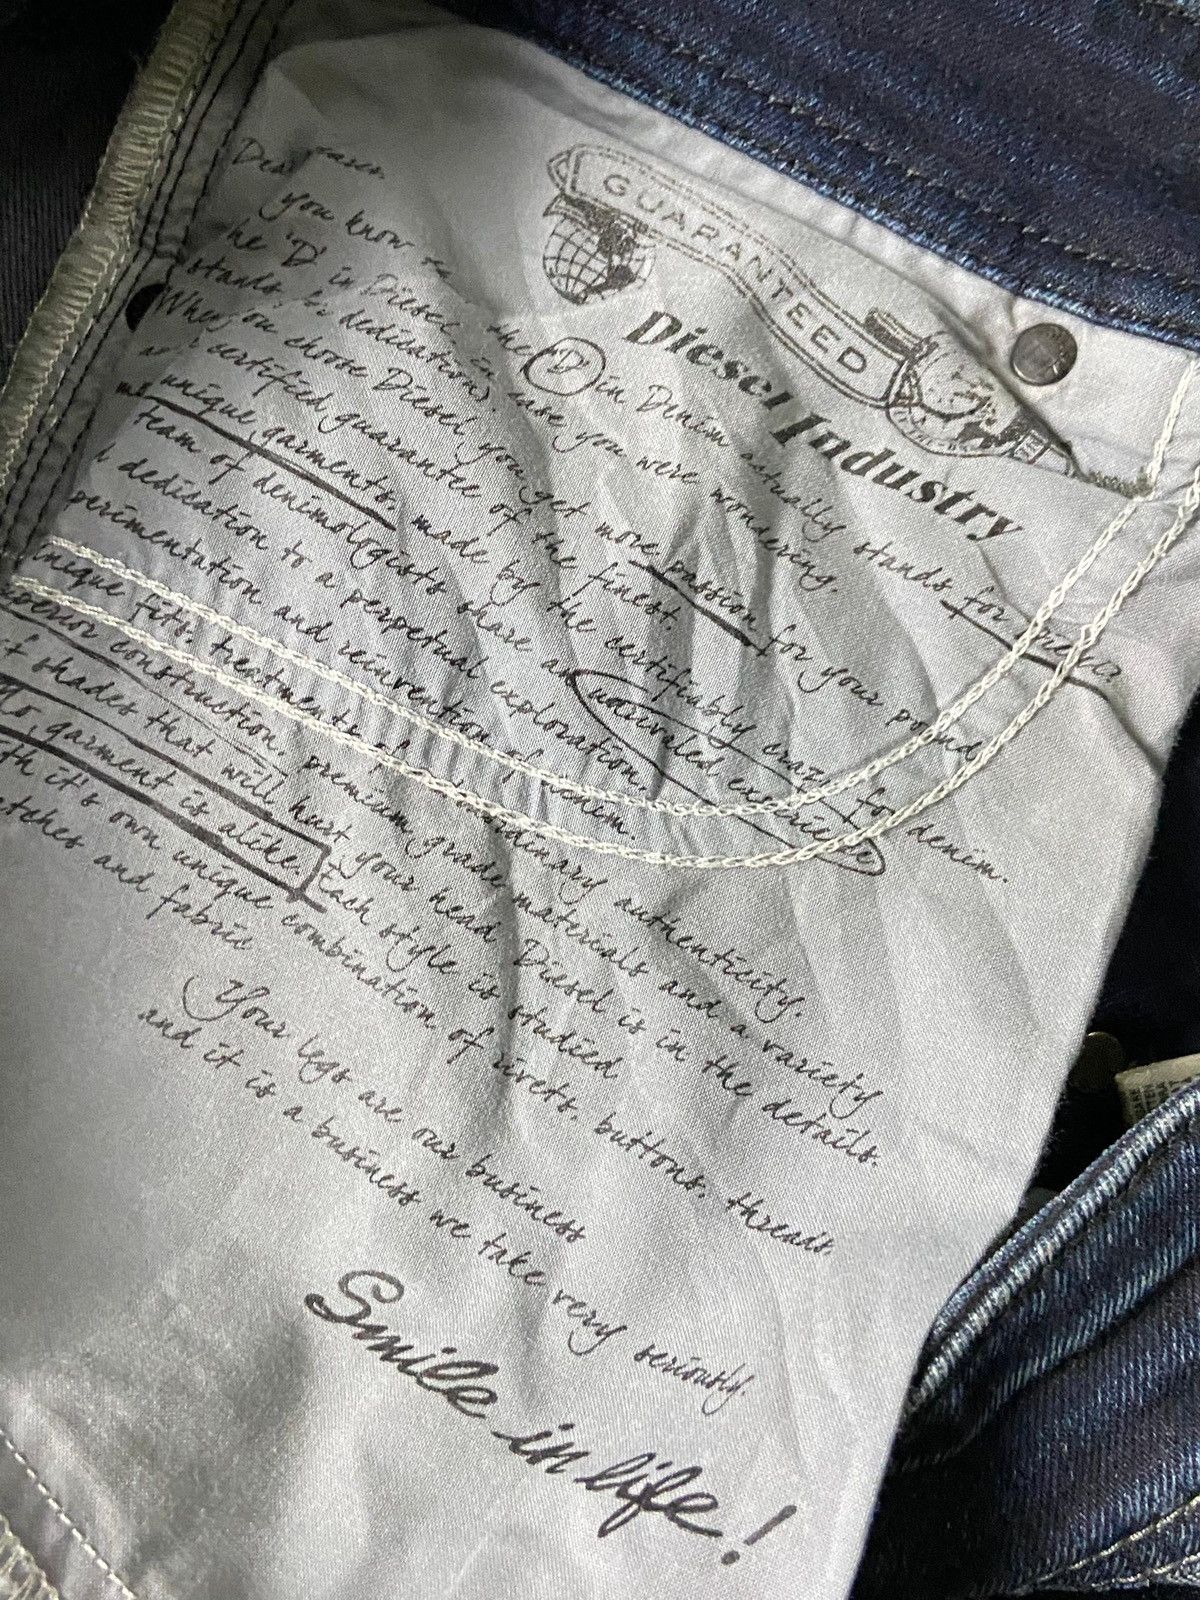 GUARANTEED
Diesel Industry
you know the "D" in Denim actually stands for
he 'D' in Diesel in case you were wondering.
stands for dedication).
When you choose Diesel you get more passion for your pound
certified guarantee of the finest.
unique garments, made by the certifiably crazy for denim.
team of denimologists share an unrivaled experience
dedication to a perpetual exploration,
perimentation and reinvention of denim.
nique fits, treatments of extraordinary authenticity.
perior construction, premium grade materials and a variety
f shades that will hurt your head Diesel is in the details.
No garment is alike. Each style is studied
ith it's own unique combination of rivets, buttons, threads
atches and fabric
Your legs are our business
and it is a business we take very seriously.
Smile in life!